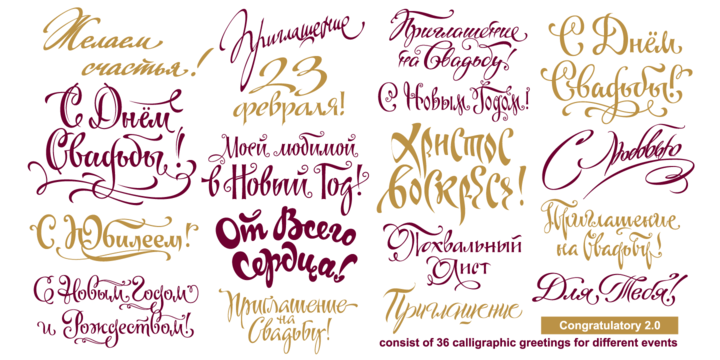 Желаем
счастья!
С Днём
Свадьбы!
С Юбилеем!
С Новым Годом
и Рождеством!
Приглашение
23
февраля!
Моей любимой
в Новый Год!
От Всего
Сердца!
Приглашение
на
Свадьбу!
Приглашение
на Свадьбу!
С Новым Годом!
Христос
воскресъ!
Похвальный
Лист
Приглашение
С Днём
Свадьбы!
С Любовью
Приглашение
на Свадьбу!
Для Тебя!
Congratulatory 2.0
consist of 36 calligraphic greetings for different events